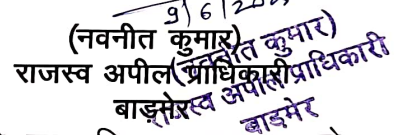 9/6/202
(नवनीत कुमार)
राजस्व अपील प्राधिकारी
बाड़मेर
(नवनीत कुमार)
राजस्व अपील प्राधिकारी
बाड़मेर